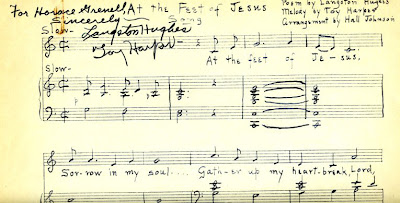 For Horace Grenell, At the Feet of Jesus
Poem by Langston Hughes
Sincerely Song
Melody by Toy Harper
Langston Hughes
Arrangement by Hall Johnson
Toy Harper
Slow-
At the feet of Je - sus,
Slow-
P
Sor-row in my soul.... Gath-er up my heart-break, Lord,